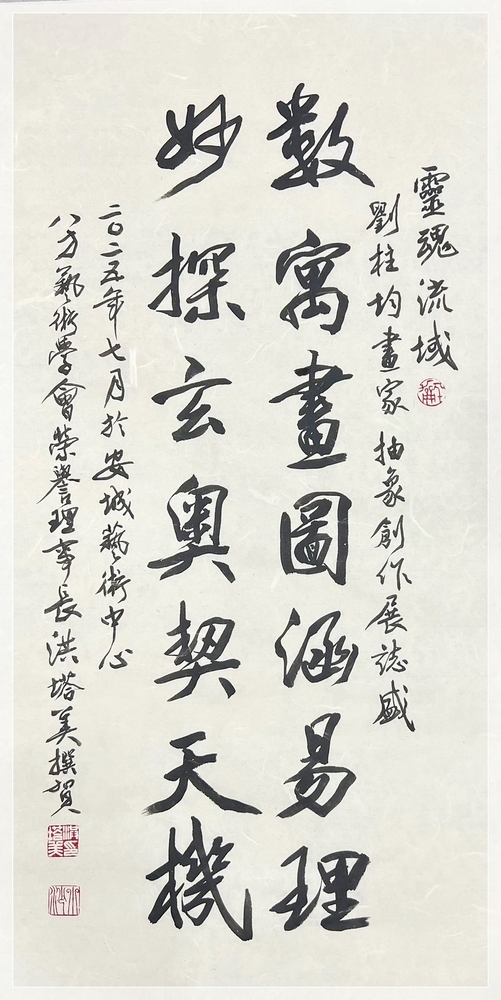 靈魂流域
劉柱均畫家 抽象創作展誌盛
數寓畫圖涵易理
妙探玄奧契天機
二〇二五年七月於安城藝術中心
八方藝術學會榮譽理事長洪塔美撰賀